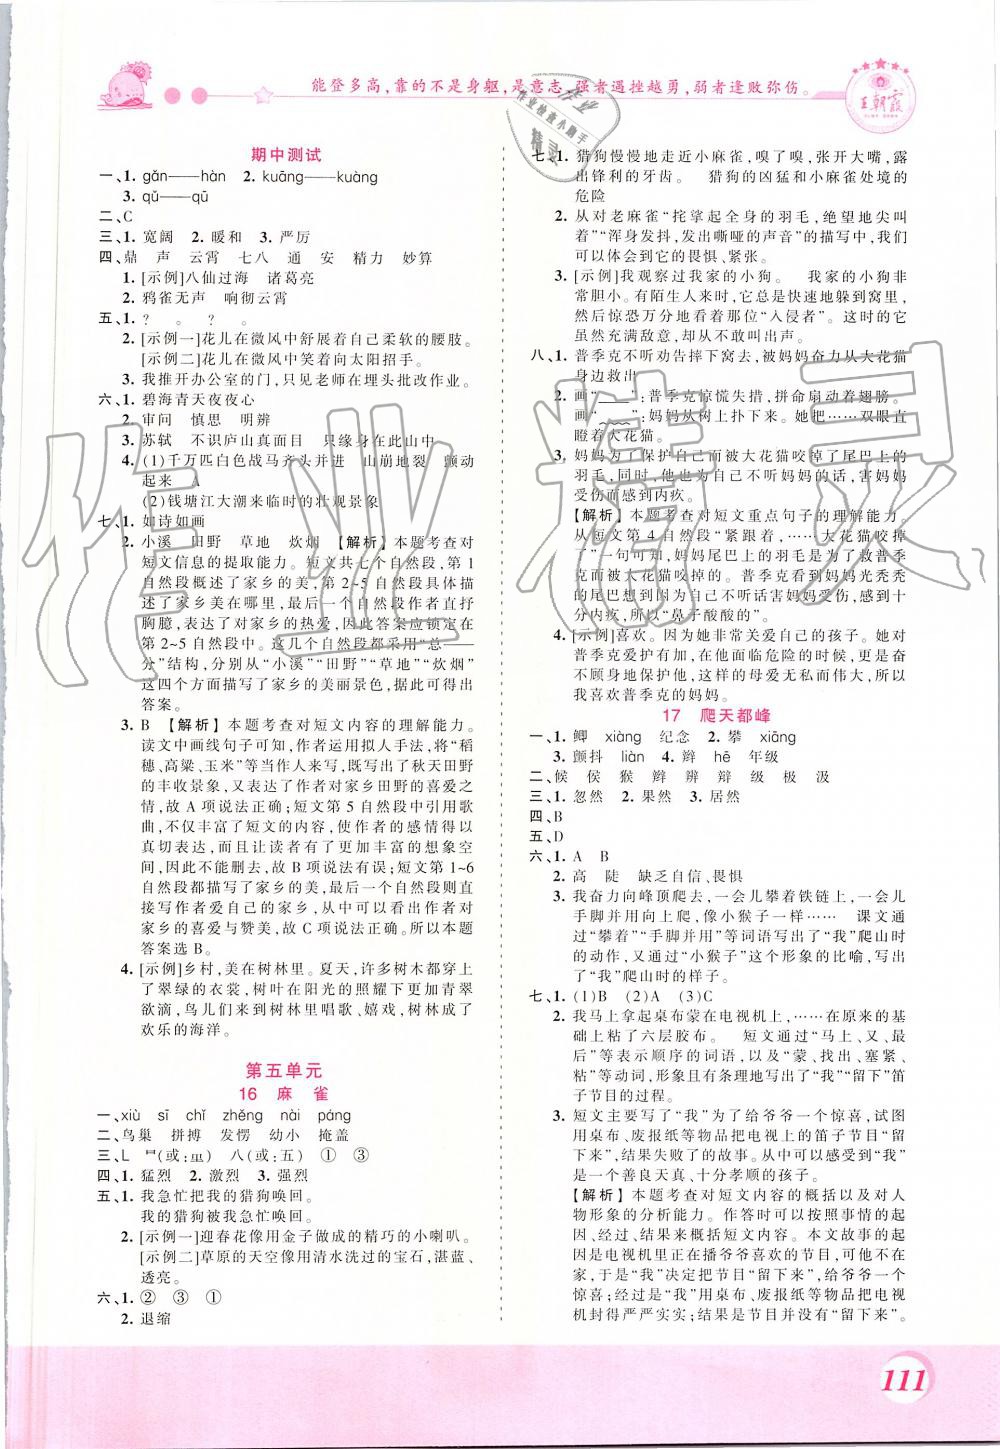 能登多高,靠的不是身躯,是意志,强者遇挫越勇,弱者逢败弥伤。
王朝霞
期中测试
一、1. gǎn——hàn 2. kuāng——kuàng
3. qǔ——qū
二、C
三、1. 宽阔 2. 暖和 3. 严厉
四、鼎 声 云霄 七八 通 安 精力 妙算
1. [示例]八仙过海 诸葛亮
2. 鸦雀无声 响彻云霄
五、1. ? 。 ? 。
2. [示例一]花儿在微风中舒展着自己柔软的腰肢。
[示例二]花儿在微风中笑着向太阳招手。
3. 我推开办公室的门,只见老师在埋头批改作业。
六、1. 碧海青天夜夜心
2. 审问 慎思 明辨
3. 苏轼 不识庐山真面目 只缘身在此山中
4. (1)千万匹白色战马齐头并进 山崩地裂 颤动
起来 A
(2)钱塘江大潮来临时的壮观景象
七、1. 如诗如画
2. 小溪 田野 草地 炊烟 【解析】本题考查对
短文信息的提取能力。短文共七个自然段,第1
自然段概述了家乡的美,第2~5自然段具体描
述了家乡美在哪里,最后两个自然段作者直抒
胸臆,表达了对家乡的热爱,因此答案应锁定在
第2~5自然段中。这几个自然段都采用“总——
分”结构,分别从“小溪”“田野”“草地”“炊烟”
这四个方面描写了家乡的美丽景色,据此可得出
答案。
3. B 【解析】本题考查对短文内容的理解能力。
读文中画线句子可知,作者运用拟人手法,将“稻
穗、高粱、玉米”等当作人来写,写出了秋天田野
的丰收景象,又表达了作者对家乡田野的喜爱之
情,故A项说法正确;短文第5自然段中引用歌
曲,不仅丰富了短文的内容,使作者的感情得以
真切表达,而且让读者产生了丰富的想象空
间,因此不能删去,故B项说法有误;短文第1~6
自然段都描写了家乡的美,最后一个自然段则直
接写作者爱自己的家乡,从中可以看出作者对家
乡的喜爱与赞美,故C项说法正确。所以本题
答案选B。
4. [示例]乡村,美在树林里。夏天,许多树木都穿
上了翠绿的衣裳,树叶在阳光的照耀下更加青翠
欲滴,鸟儿们来到树林里唱歌、嬉戏,树林成了
欢乐的海洋。
第五单元
16 麻 雀
一、xiù sī chǐ zhěng nài páng
二、鸟巢 拼搏 发愣 幼小 掩盖
三、L (或:里) 八(或:五) ① ③
四、1. 猛烈 2. 激烈 3. 强烈
五、1. 我急忙把我的猎狗唤回。
我的猎狗被我急忙唤回。
2. [示例一]迎春花像用金子做成的精巧的小喇叭。
[示例二]草原的天空像用清水洗过的宝石,湛蓝、
透亮。
六、1. ② ③ ①
2. 退缩
七、1. 猎狗慢慢地走近小麻雀,嗅了嗅,张开大嘴,露
出锋利的牙齿。 猎狗的凶猛和小麻雀处境的
危险
2. 从对老麻雀“挓挲起全身的羽毛,绝望地尖叫
着”“浑身发抖,发出嘶哑的声音”的描写中,我
们可以体会到它的畏惧、紧张。
3. [示例]我观察过我家的小狗。 我家的小狗非
常胆小。有陌生人来时,它总是快速地躲到窝里,
然后惊恐万分地看着那位“入侵者”。这时的它
虽然充满敌意,却从不敢叫出声。
八、1. 普季克不听劝告摔下窝去,被妈妈奋力从大花猫
身边救出
2. 画“____”:普季克惊慌失措,拼命扇动着翅膀。
画“﹏﹏”:妈妈从树上扑下来。她把……双眼直
瞪着大花猫。
3. 妈妈为了保护自己而被大花猫咬掉了尾巴上的
羽毛,同时,他也为自己不听妈妈的话,害妈妈
受伤而感到内疚。
【解析】本题考查对短文重点句子的理解能力。
从短文第4自然段“紧跟着,……大花猫咬掉
了”一句可知,妈妈尾巴上的羽毛是为了救普季
克而被大花猫咬掉的。普季克见妈妈光秃秃
的尾巴想到因为自己不听话害妈妈受伤,感到十
分内疚,所以“鼻子酸酸的”。
4. [示例]喜欢。因为她非常关爱自己的孩子。她对
普季克爱护有加,在他面临危险的时候,更是奋
不顾身地保护他,这样的母爱无私而伟大。所以
我喜欢普季克的妈妈。
17 爬天都峰
一、1. 鲫 xiàng 纪念 2. 攀 xiāng
3. 颤抖 liàn 4. 辫 hē 年级
二、候 侯 猴 辫 辨 辩 级 极 汲
三、1. 忽然 2. 果然 3. 居然
四、B
五、D
六、1. A B
2. 高 陡 缺乏自信、畏惧
3. 我奋力向峰顶爬去,一会儿攀着铁链上,一会儿
手脚并用向上爬,像小猴子一样…… 课文通
过“攀着”“手脚并用”等词语写出了“我”爬山时
的动作,又通过“小猴子”这个形象的比喻,写出
了“我”爬山时的样子。
七、1. (1)B (2)A (3)C
2. 我马上拿起桌布蒙在电视机上,……在原来的基
础上粘了六层胶布。 短文通过“马上、又、最
后”等表示顺序的词语,以及“蒙、找出、塞紧、
粘”等动词,形象而有条理地写出了“我”“留下”笛子
节目的过程。
3. 短文主要写了“我”为了给爷爷一个惊喜,试图
用桌布、废报纸等物品把电视上的笛子节目“留
下来”,结果失败了的故事。从中可以看出,
“我”是一个善良天真、十分孝顺的孩子。
【解析】本题考查对短文内容的概括以及对人
物形象的分析能力。作答时可以按照事情的起
因、经过、结果来概括短文内容。本文故事的起
因是电视机里正在播爷爷喜欢的节目,引出下
文;于是“我”决定把节目“留下来”,给爷爷一个
惊喜;经过是“我”用桌布、废报纸等物品把电视
机封得严严实实;结果是节目并没有“留下来”。
111
作业精灵
作业检查小助手
精灵